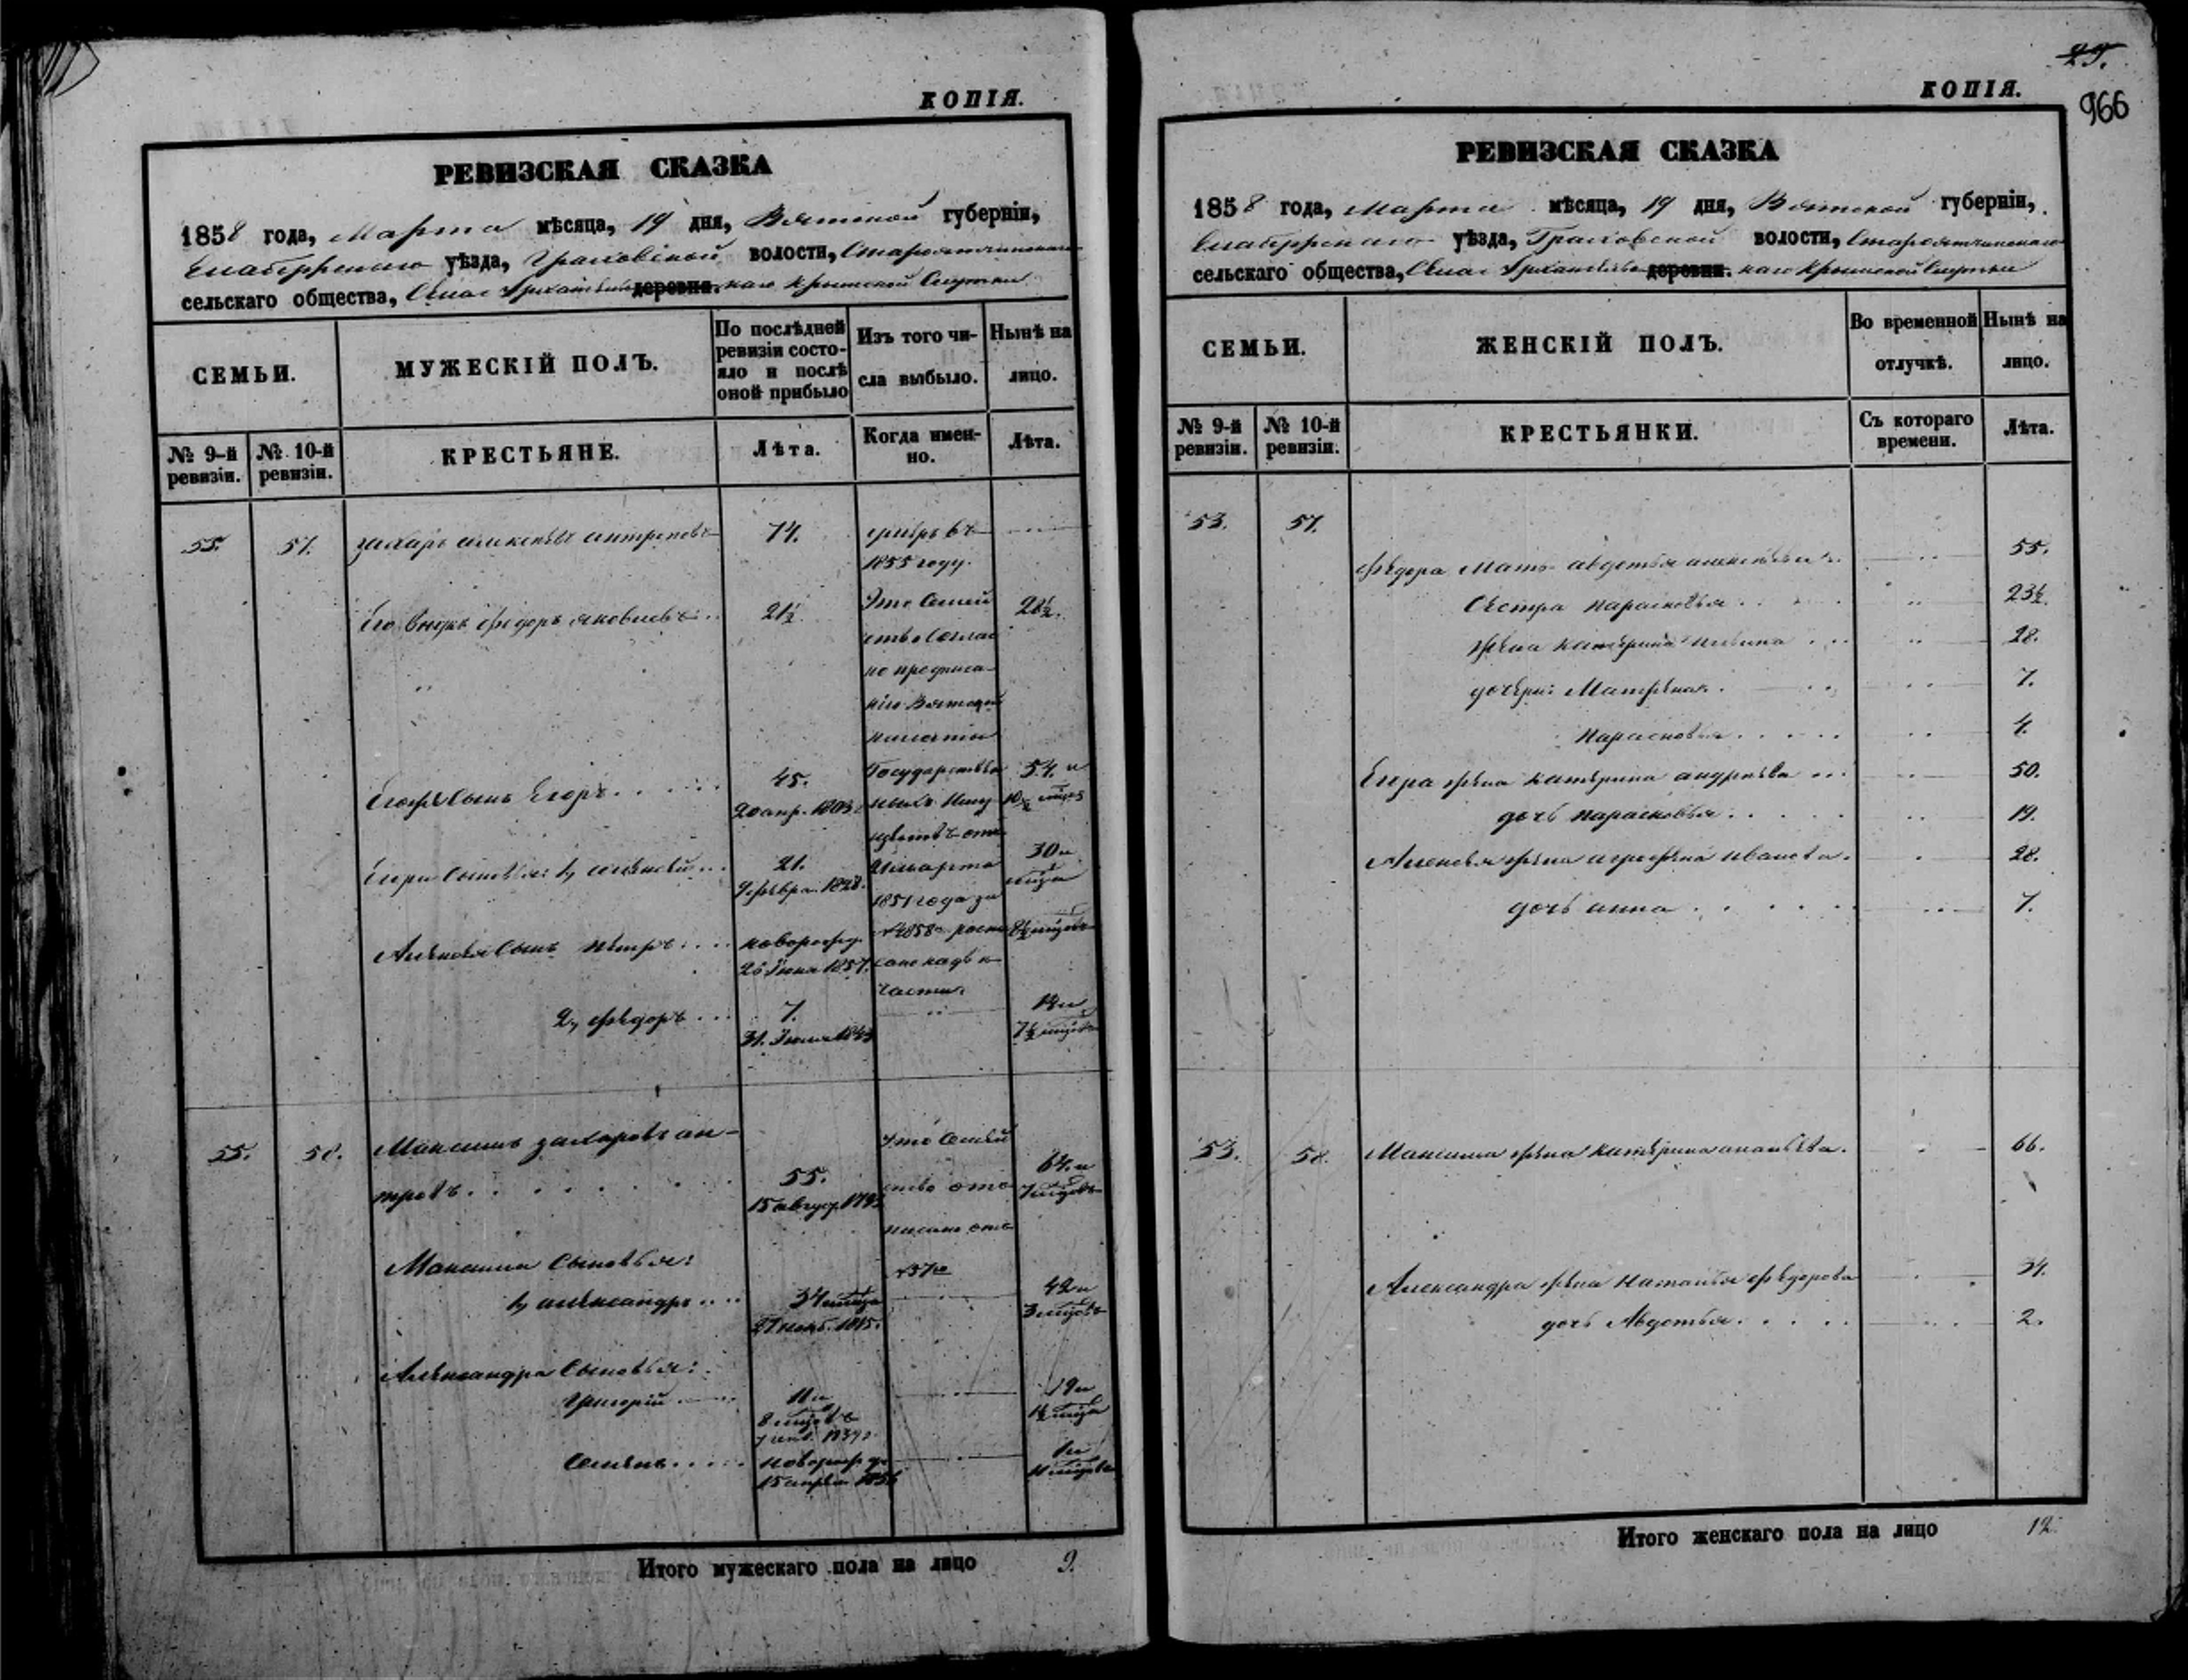 КОПІЯ.
РЕВИЗСКАЯ СКАЗКА
1858 года, Марта мѣсяца, 19 дня, Вятской губерніи,
Елабужскаго уѣзда, Граховской волости,
сельскаго общества, Села деревни. Крымской Слудки
СЕМЬИ.
МУЖЕСКІЙ ПОЛЪ.
По послѣдней ревизіи состояло и послѣ оной прибыло
Изъ того числа выбыло.
Нынѣ на лицо.
№ 9-й ревизіи.
№ 10-й ревизіи.
КРЕСТЬЯНЕ.
Лѣта.
Когда именно.
Лѣта.
55. 57. Захаръ Алексѣевъ 74. умеръ въ
1855 году.
Его внукъ Федоръ Яковлевъ 21½ Это Семей 28½.
ство Соглас
но предписа
нію Вятской
палаты
Государствен
Сынъ Егоръ 45. 54. и
20 апр. 1803 ныхъ Иму
ществъ отъ
Егора Сыновья: 1, Алексѣй 21. марта 30 и
9 Февра. 1828. 1851 года за
Алексѣя Сынъ Петръ новорожд. № 4858 8½ мѣсяцовъ
26 Іюня 1857.
части.
2, Федоръ 7.
31. Іюля 1843 7½ мѣсяцовъ
55. 58. Максимъ Захаровъ Ан- Это Семей
троповъ 55. ство 64. и
15 август. 1793 7 мѣсяцовъ
писано отъ
Максима Сыновья: № 57го
1, Александръ 34 42 и
27 нояб. 1815. 3 мѣсяцовъ
Александра Сыновья:
Григорій 11 и 19 и
8 мѣсяцовъ 1½ мѣсяца
1839
Семенъ новорожд. 1 и
15 апрѣля 1856 11 мѣсяцовъ
Итого мужескаго пола на лицо 9.
25.
КОПІЯ.
966
РЕВИЗСКАЯ СКАЗКА
1858 года, Марта мѣсяца, 19 дня, Вятской губерніи,
Елабужскаго уѣзда, Граховской волости,
сельскаго общества, Села деревни. Крымской Слудки
СЕМЬИ.
ЖЕНСКІЙ ПОЛЪ.
Во временной отлучкѣ.
Нынѣ на лицо.
№ 9-й ревизіи.
№ 10-й ревизіи.
КРЕСТЬЯНКИ.
Съ котораго времени.
Лѣта.
53. 57.
Федора Мать Авдотья Алексѣева 55.
Сестра Парасковья 23½.
жена Катерина 28.
дочери: Матрена 7.
Парасковья 4.
Егора жена Катерина Андреева 50.
дочь Парасковья 19.
Алексѣя жена Агрофена Иванова. 28.
дочь Анна 7.
53. 58. Максима жена Катерина Ананьева. 66.
Александра жена Наталья Федорова 34.
дочь Авдотья 2.
Итого женскаго пола на лицо 12.